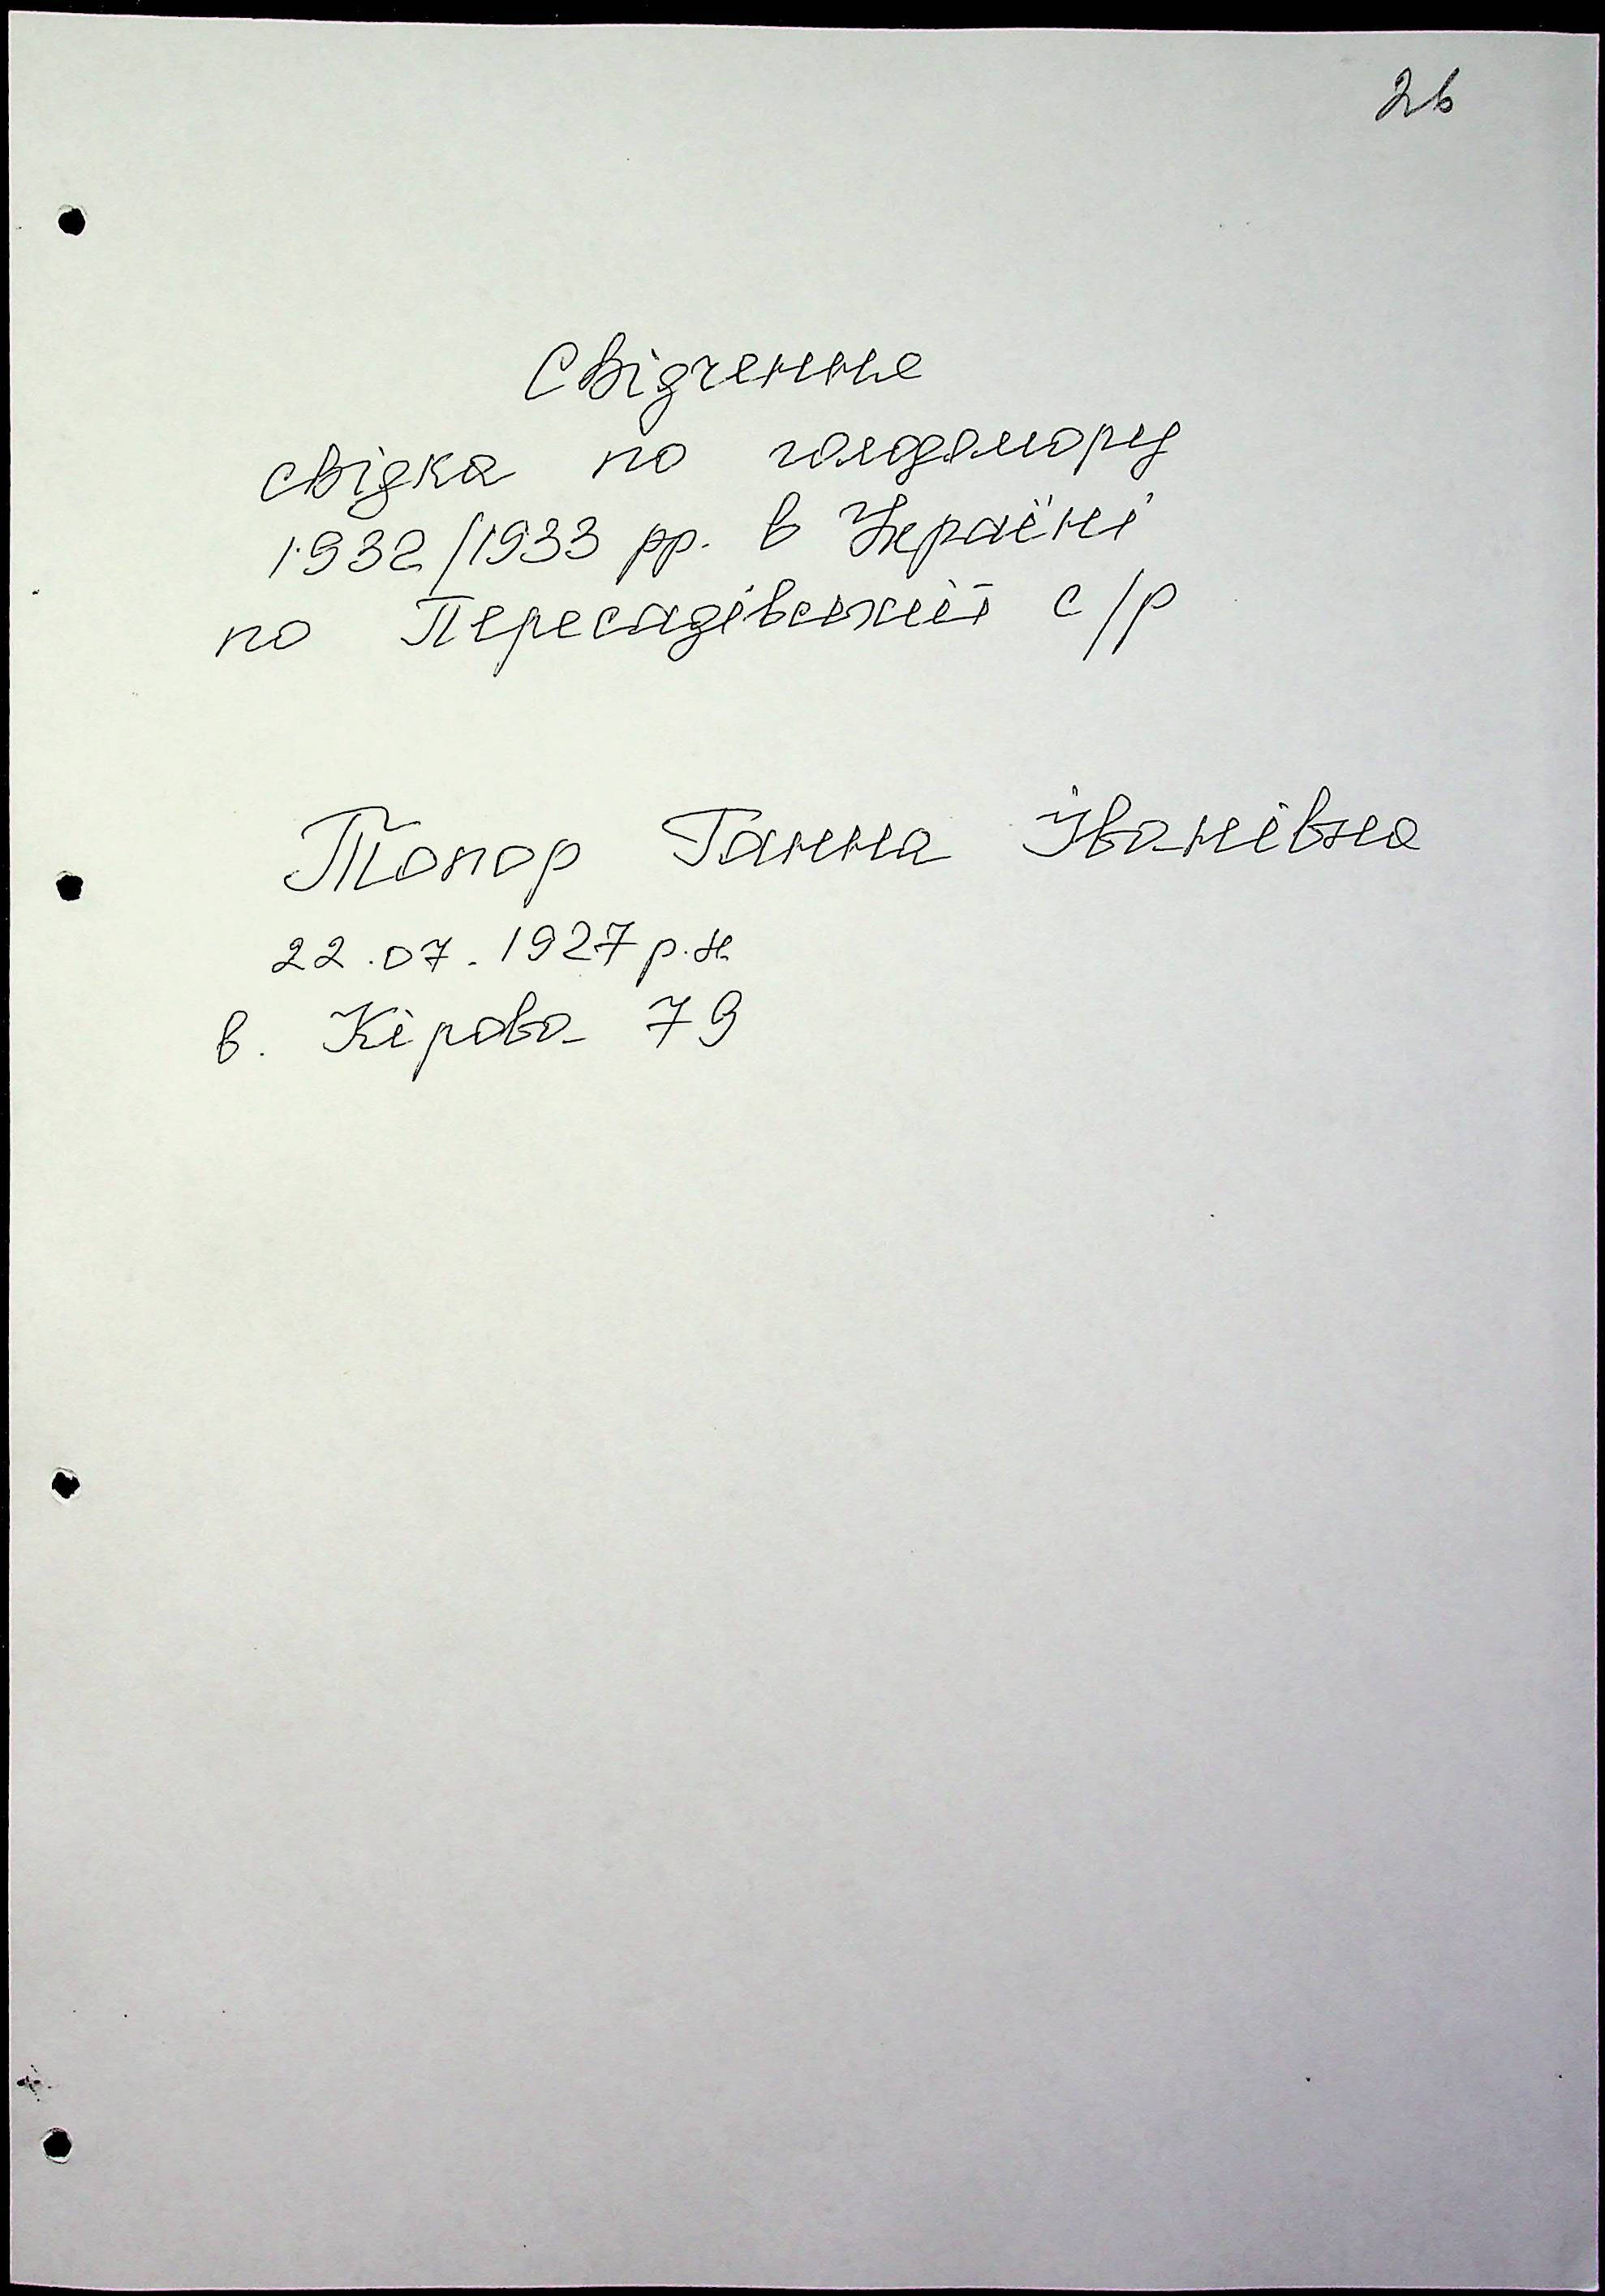 26
Свідчення
свідка по голодомору
1932/1933 рр. в Україні
по Пересадівській с/р
Топор Ганна Іванівна
22.07.1927 р.н.
в. Кірова 79